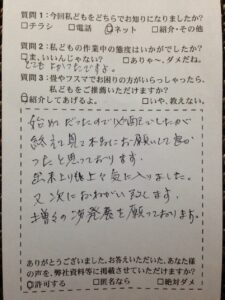 質問1：今回私どもをどちらでお知りになりましたか?
□チラシ　□電話　☑ネット　□紹介・その他
質問2：私どもの作業中の態度はいかがでしたか?
□ま、いいんじゃない?　□ありゃ～、ダメだね。
とてもよかったですよ。
質問3：畳やフスマでお困りの方がいらっしゃったら、
私どもをご推薦いただけますか?
☑紹介してあげるよ。　□いや、教えない。
始めてだったので心配でしたが
終えて見て本当にお願いして良か
ったと思っております。
出来上り仕上々気に入りました。
又次におねがい致します。
増々の御発展を願っております。
ありがとうございました。お答えいただいた、あなた様
の声を、弊社資料等に掲載させていただけますか?
☑許可する　□匿名なら　□絶対ダメ!